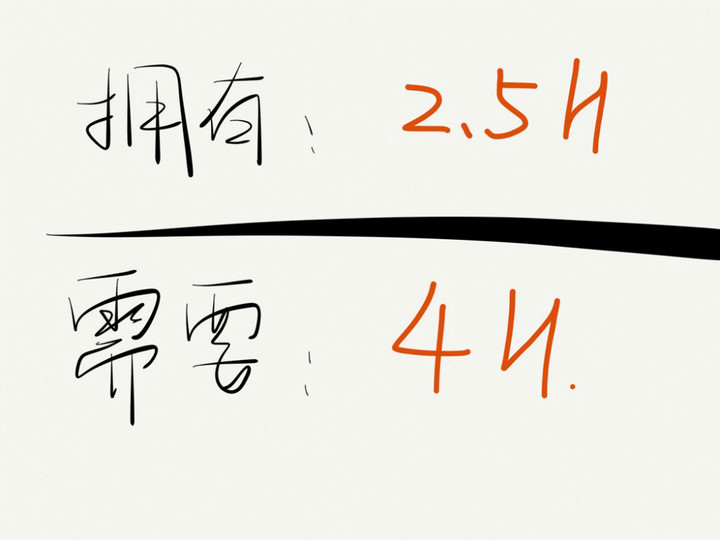 拥有： 2.5H
需要： 4H.